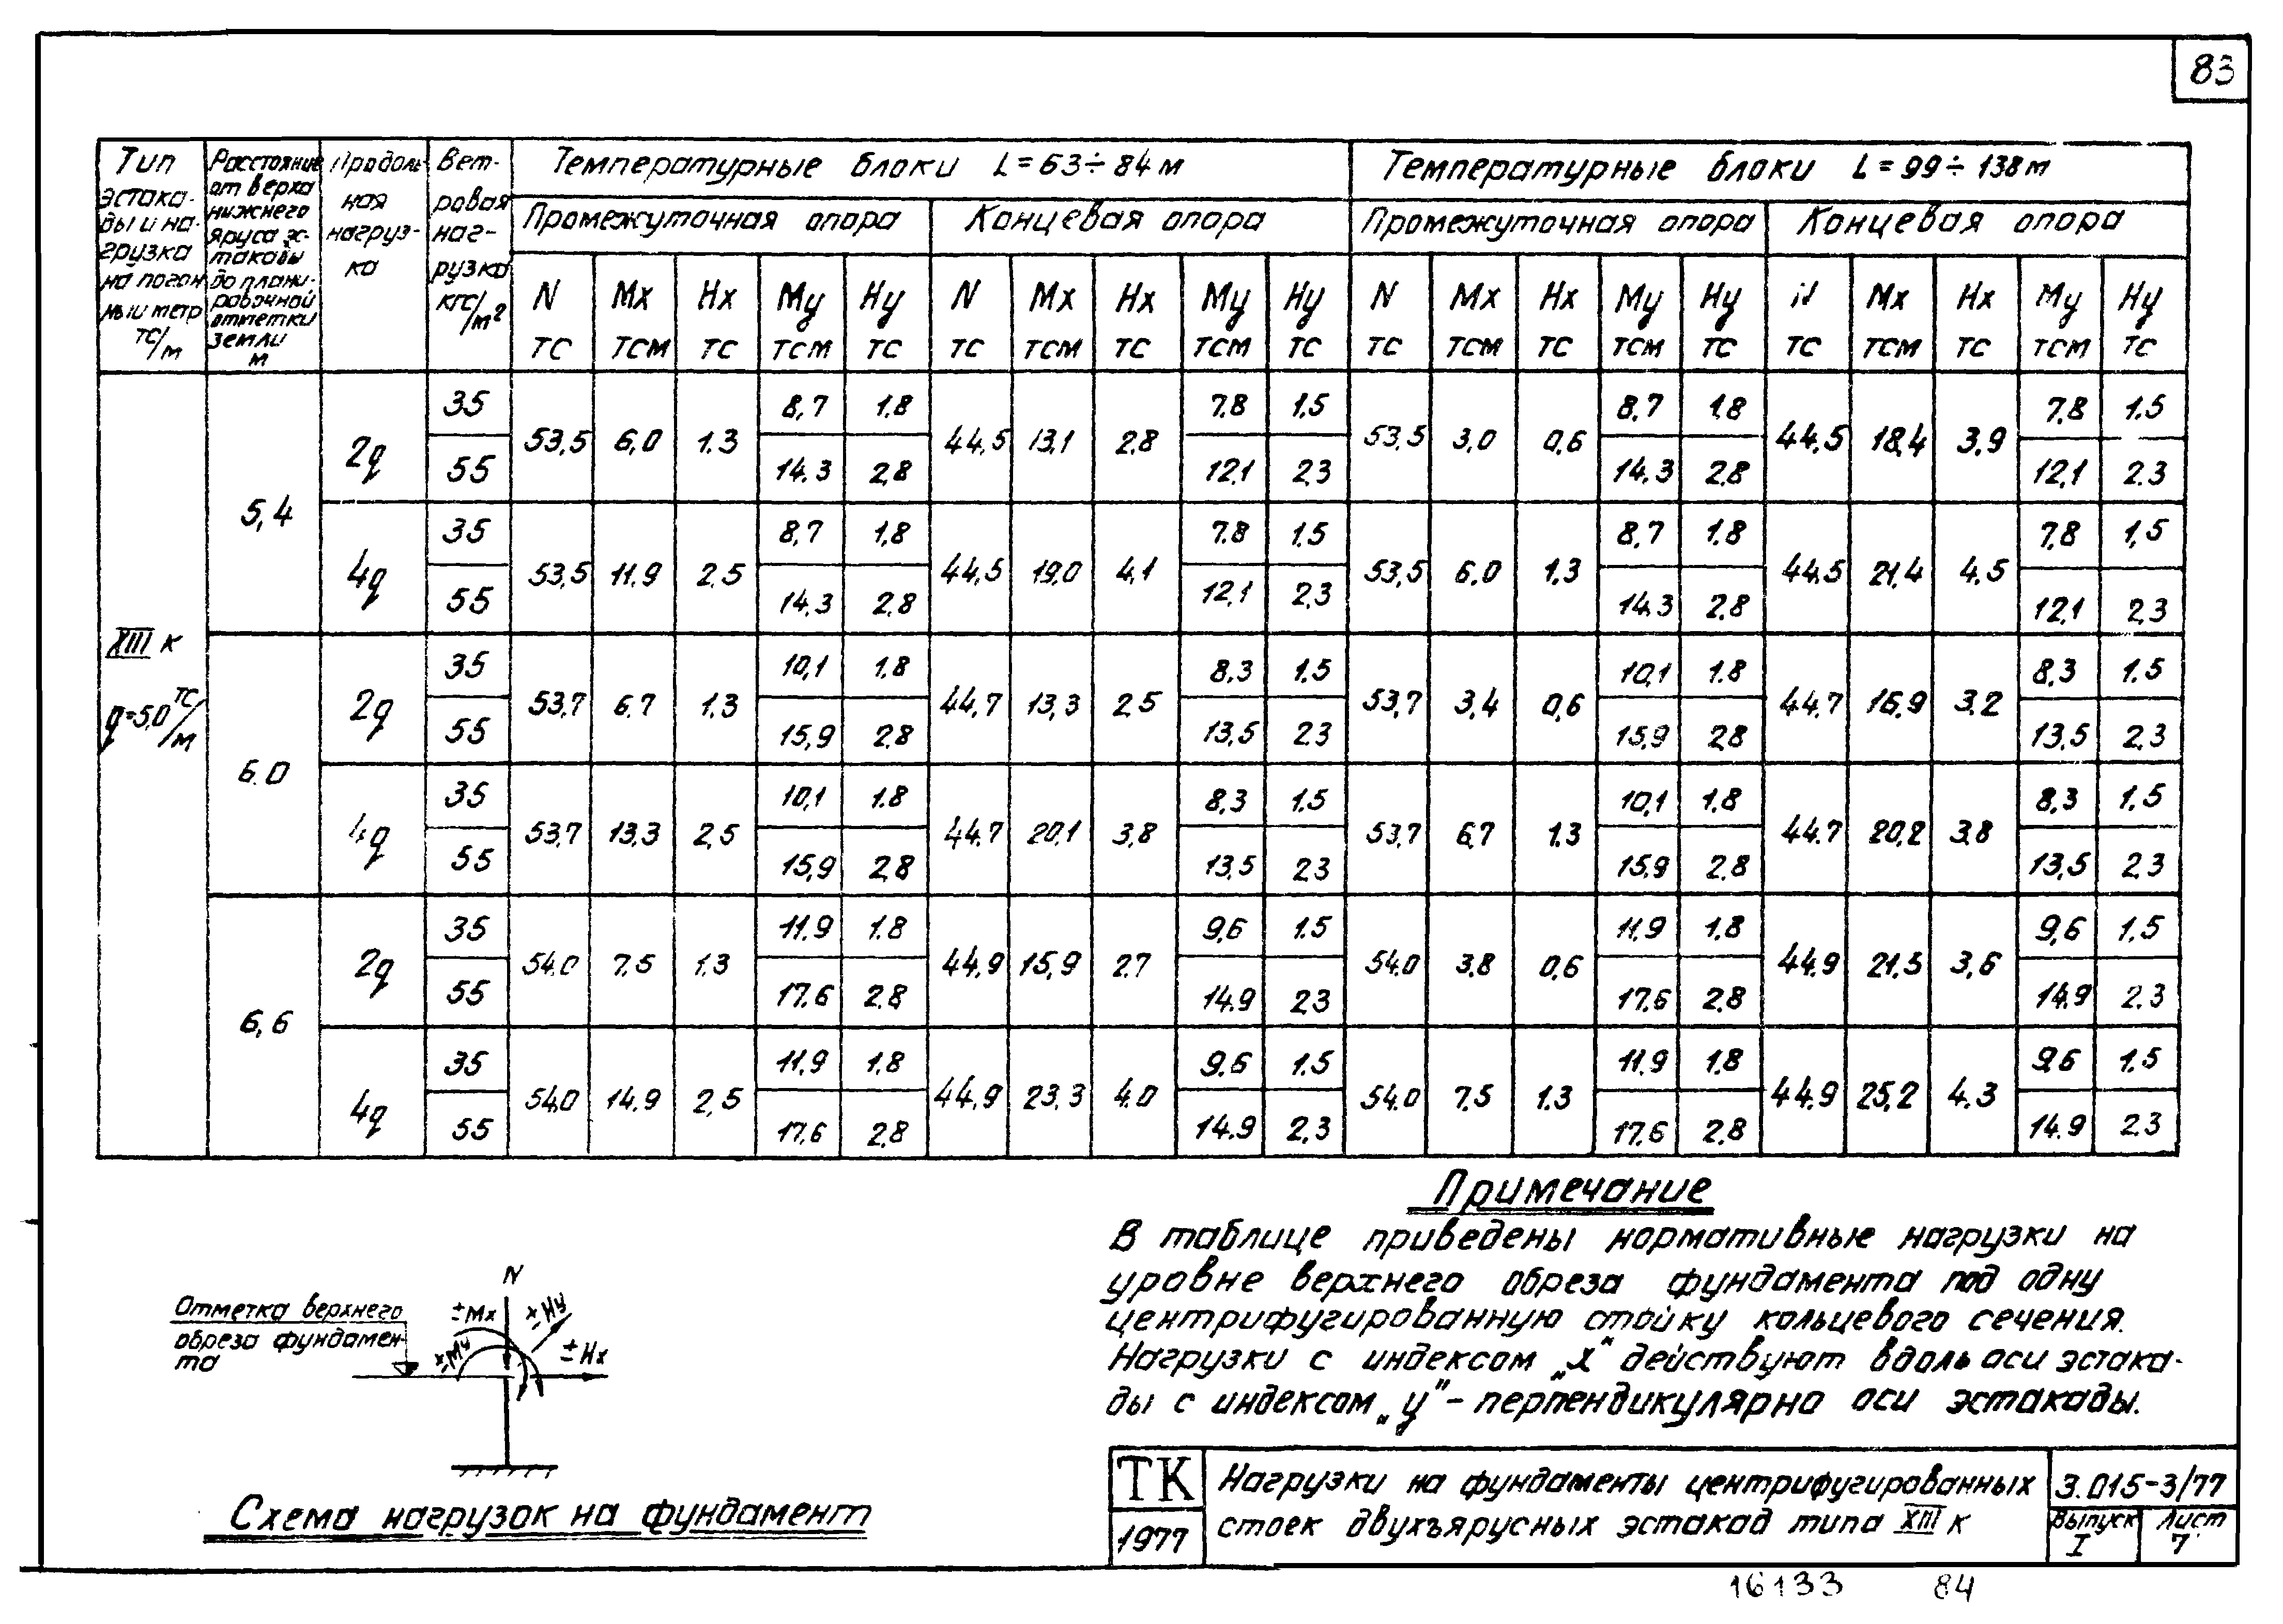 83
Тип эстакады и нагрузка на погонный метр тс/м
Расстояние от верха нижнего яруса эстакады до планировочной отметки земли м
Продольная нагрузка
Ветровая нагрузка кгс/м²
Температурные блоки L=63÷84м
Температурные блоки L=99÷138м
Промежуточная опора Концевая опора Промежуточная опора Концевая опора
N Mx Hx My Hy N Mx Hx My Hy N Mx Hx My Hy N Mx Hx My Hy
тс тсм тс тсм тс тс тсм тс тсм тс тс тсм тс тсм тс тс тсм тс тсм тс
XIII к
q=5,0 тс/м
5,4
2q
35 8,7 1.8 7.8 1.5 8,7 1.8 7.8 1.5
53,5 6,0 1.3 44,5 13,1 2.8 53,5 3,0 0,6 44,5 18,4 3.9
55 14.3 2,8 12,1 2.3 14.3 2.8 12,1 2.3
4q
35 8,7 1,8 7.8 1.5 8,7 1.8 7.8 1,5
53,5 11.9 2,5 44,5 19.0 4,1 53,5 6.0 1.3 44.5 21,4 4.5
55 14,3 2.8 12,1 2.3 14.3 2.8 12,1 2.3
6.0
2q
35 10,1 1.8 8,3 1.5 10,1 1.8 8,3 1.5
53,7 6.7 1.3 44,7 13,3 2.5 53,7 3,4 0,6 44.7 16.9 3.2
55 15,9 2.8 13,5 2.3 15,9 2.8 13,5 2.3
4q
35 10,1 1.8 8,3 1.5 10,1 1.8 8,3 1.5
53,7 13,3 2,5 44.7 20,1 3,8 53,7 6,7 1.3 44.7 20,2 3.8
55 15,9 2,8 13,5 2.3 15,9 2.8 13,5 2.3
6,6
2q
35 11.9 1.8 9,6 1.5 11,9 1.8 9,6 1.5
54.0 7.5 1.3 44,9 15,9 2.7 54.0 3.8 0,6 44.9 21.5 3,6
55 17.6 2.8 14.9 2.3 17.6 2.8 14.9 2.3
4q
35 11.9 1.8 9.6 1.5 11.9 1.8 9.6 1.5
54.0 14.9 2,5 44.9 23.3 4.0 54.0 7.5 1.3 44.9 25,2 4.3
55 17.6 2,8 14.9 2,3 17.6 2.8 14.9 2.3
Примечание
В таблице приведены нормативные нагрузки на
уровне верхнего обреза фундамента под одну
центрифугированную стойку кольцевого сечения.
Нагрузки с индексом „х“ действуют вдоль оси эстака-
ды с индексом „у“ - перпендикулярно оси эстакады.
Отметка верхнего
обреза фундамен-
та
N
±Mx
±Hy
±My
±Hx
Схема нагрузок на фундамент
ТК
1977
Нагрузки на фундаменты центрифугированных
стоек двухъярусных эстакад типа XIII к
3.015-3/77
Выпуск I
Лист 7
16133 84